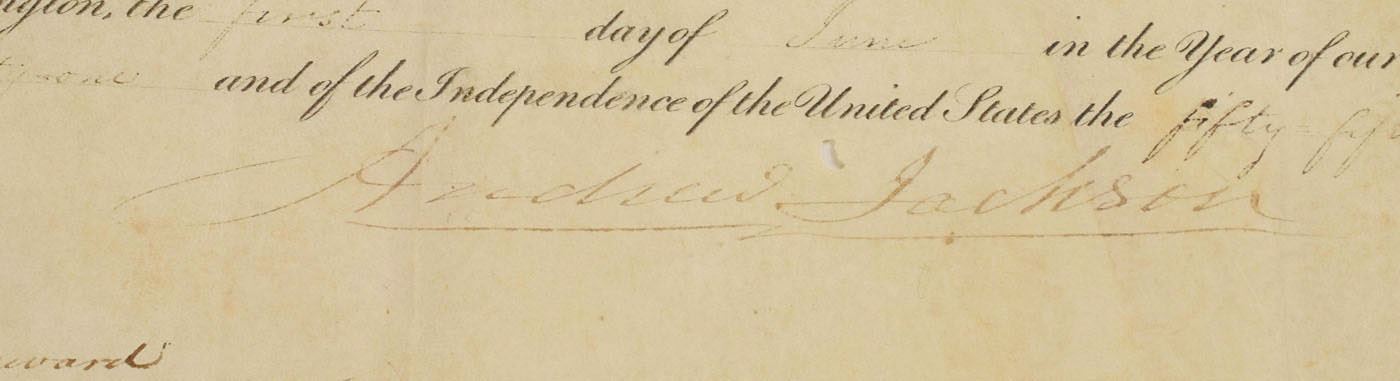 the first day of June in the Year of our
one and of the Independence of the United States the fifty=
Andrew Jackson